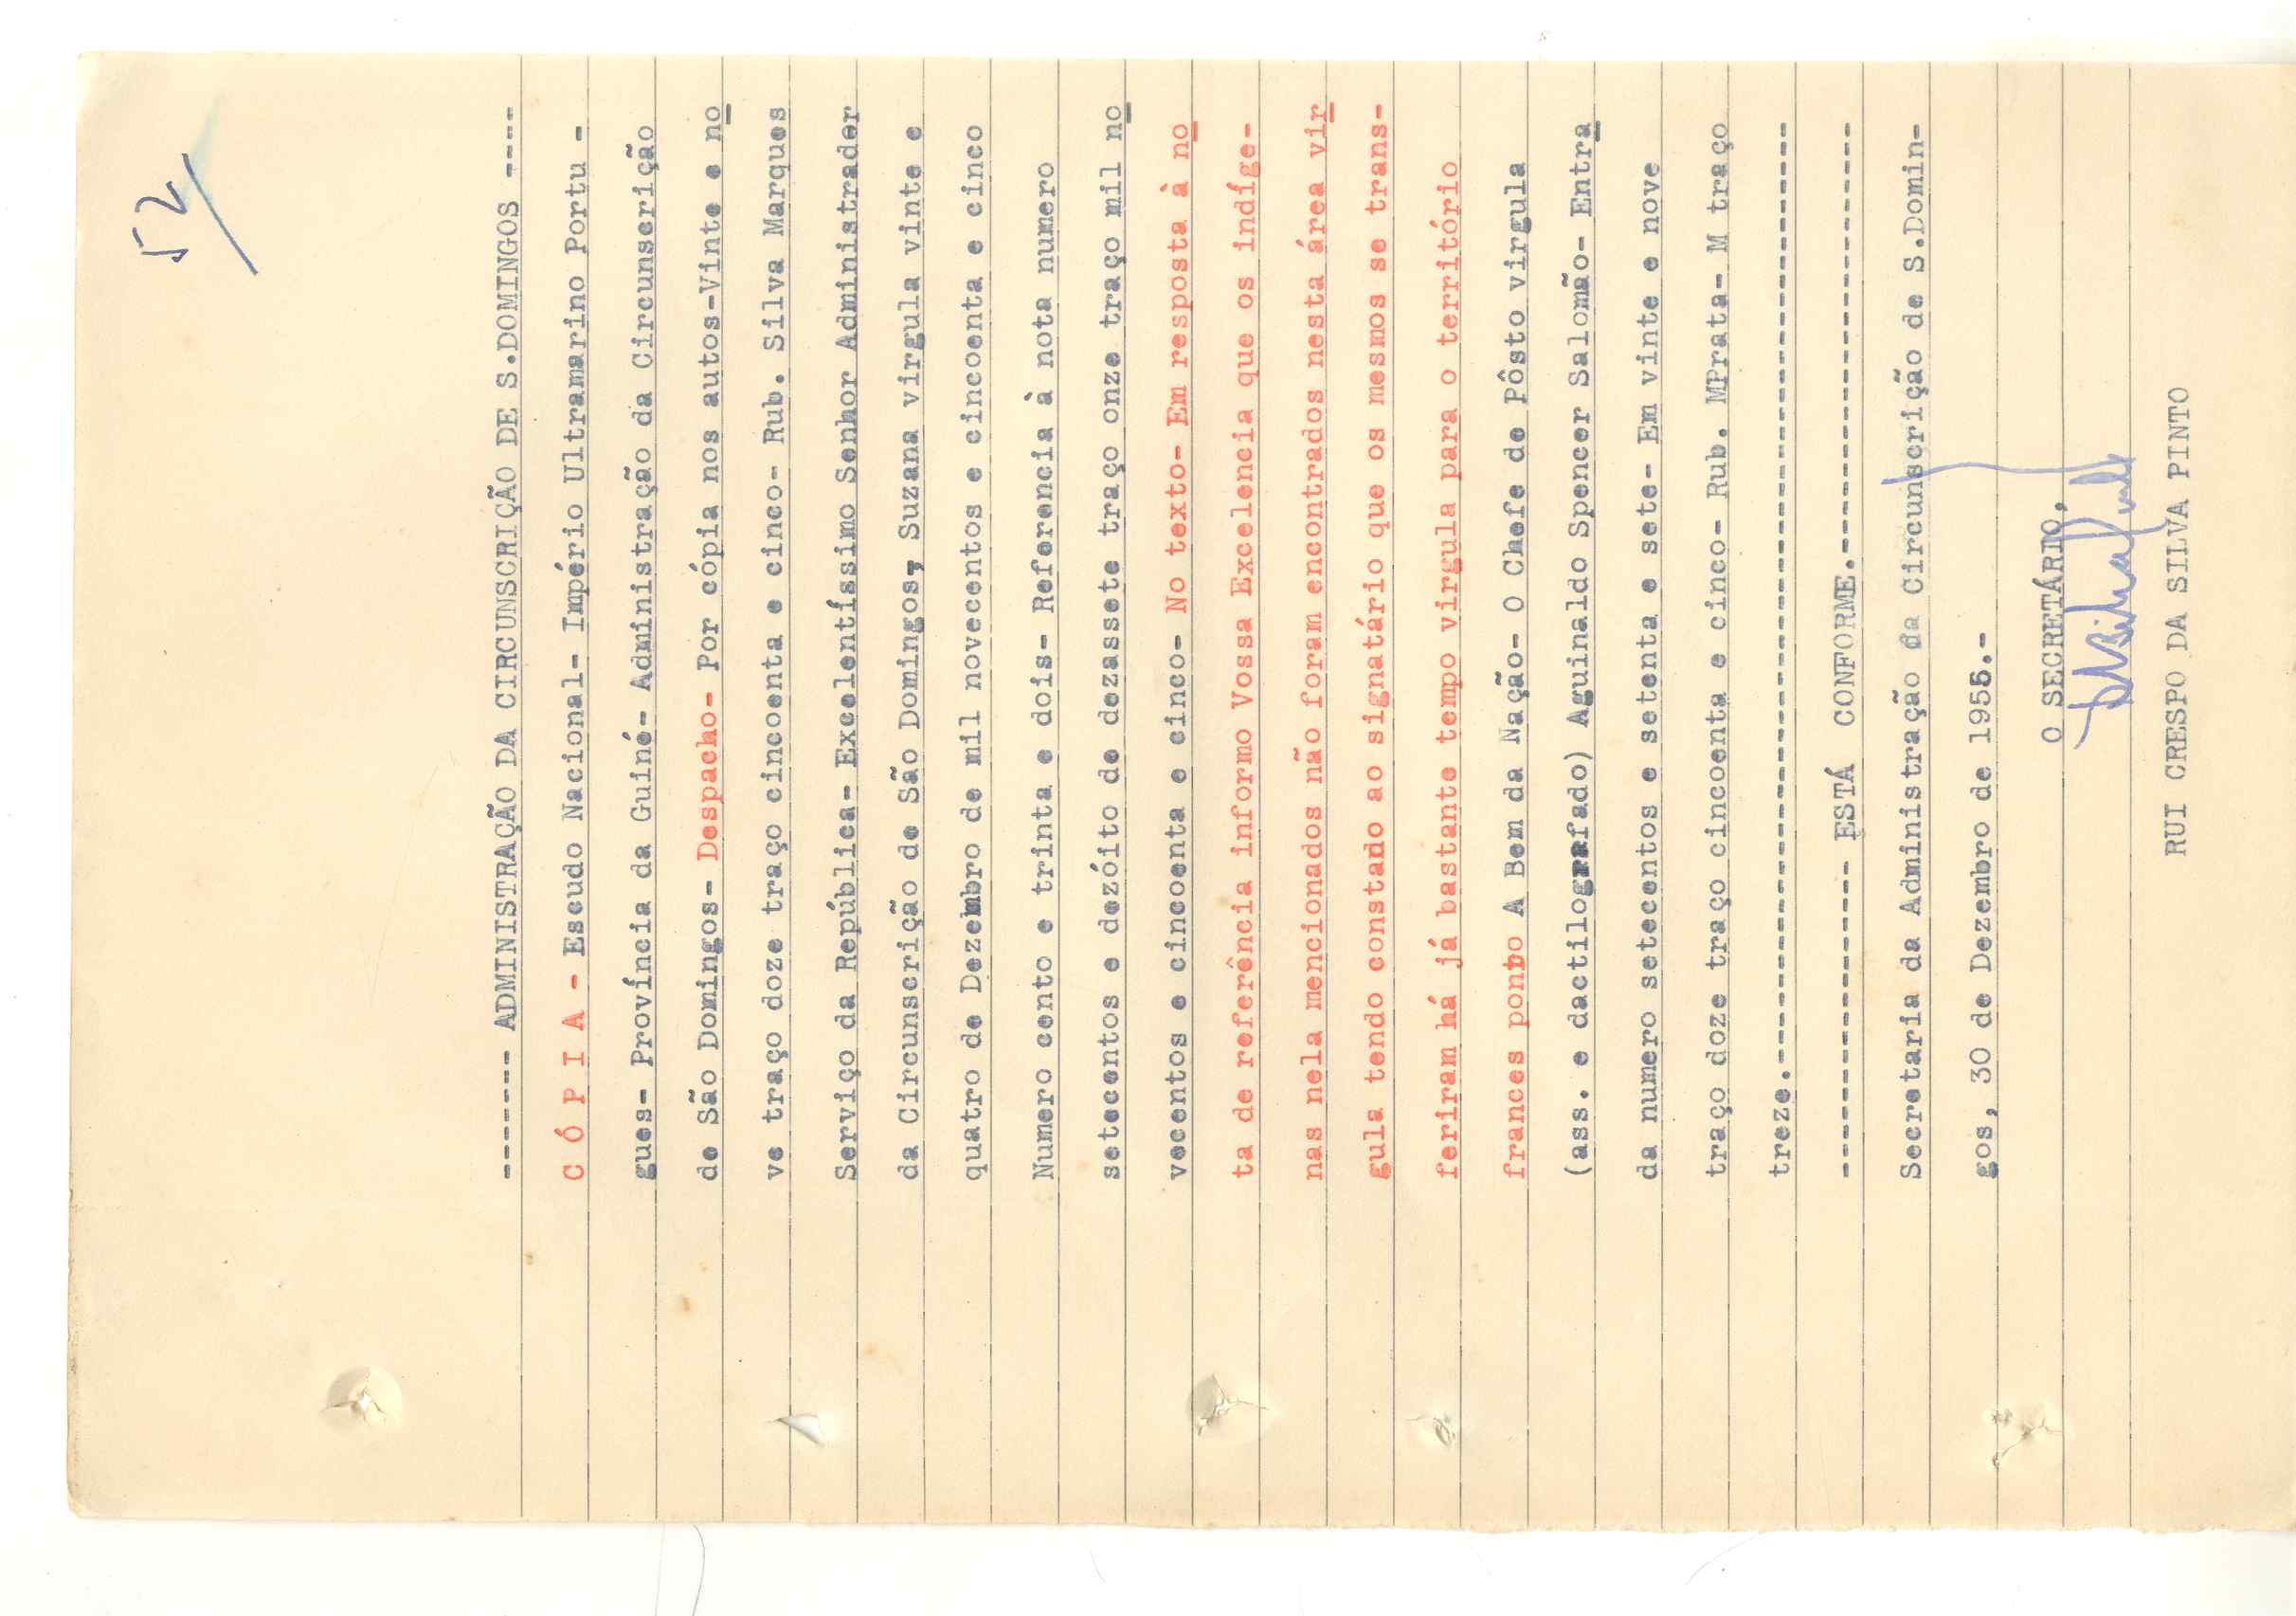 52
------- ADMINISTRAÇÃO DA CIRCUNSCRIÇÃO DE S.DOMINGOS ----
C Ó P I A - Escudo Nacional- Império Ultramarino Portu -
gues- Província da Guiné- Administração da Circunscrição
de São Domingos- Despacho- Por cópia nos autos-Vinte e no
ve traço doze traço cincoenta e cinco- Rub. Silva Marques
Serviço da República- Excelentíssimo Senhor Administrador
da Circunscrição de São Domingos, Suzana virgula vinte e
quatro de Dezembro de mil novecentos e cincoenta e cinco
Numero cento e trinta e dois- Referencia à nota numero
setecentos e dezóito de dezassete traço onze traço mil no
vecentos e cincoenta e cinco- No texto- Em resposta à no
ta de referência informo Vossa Excelencia que os indíge-
nas nela mencionados não foram encontrados nesta área vir
gula tendo constado ao signatário que os mesmos se trans-
feriram há já bastante tempo virgula para o território
frances ponto A Bem da Nação- O Chefe de Pôsto virgula
(ass. e dactilografado) Aguinaldo Spencer Salomão- Entra
da numero setecentos e setenta e sete- Em vinte e nove
traço doze traço cincoenta e cinco- Rub. MPrata- M traço
treze.--------------------------------------------------
------------------ ESTÁ CONFORME.-----------------------
Secretaria da Administração da Circunscrição de S.Domin-
gos, 30 de Dezembro de 1955.-
O SECRETÁRIO,
RUI CRESPO DA SILVA PINTO